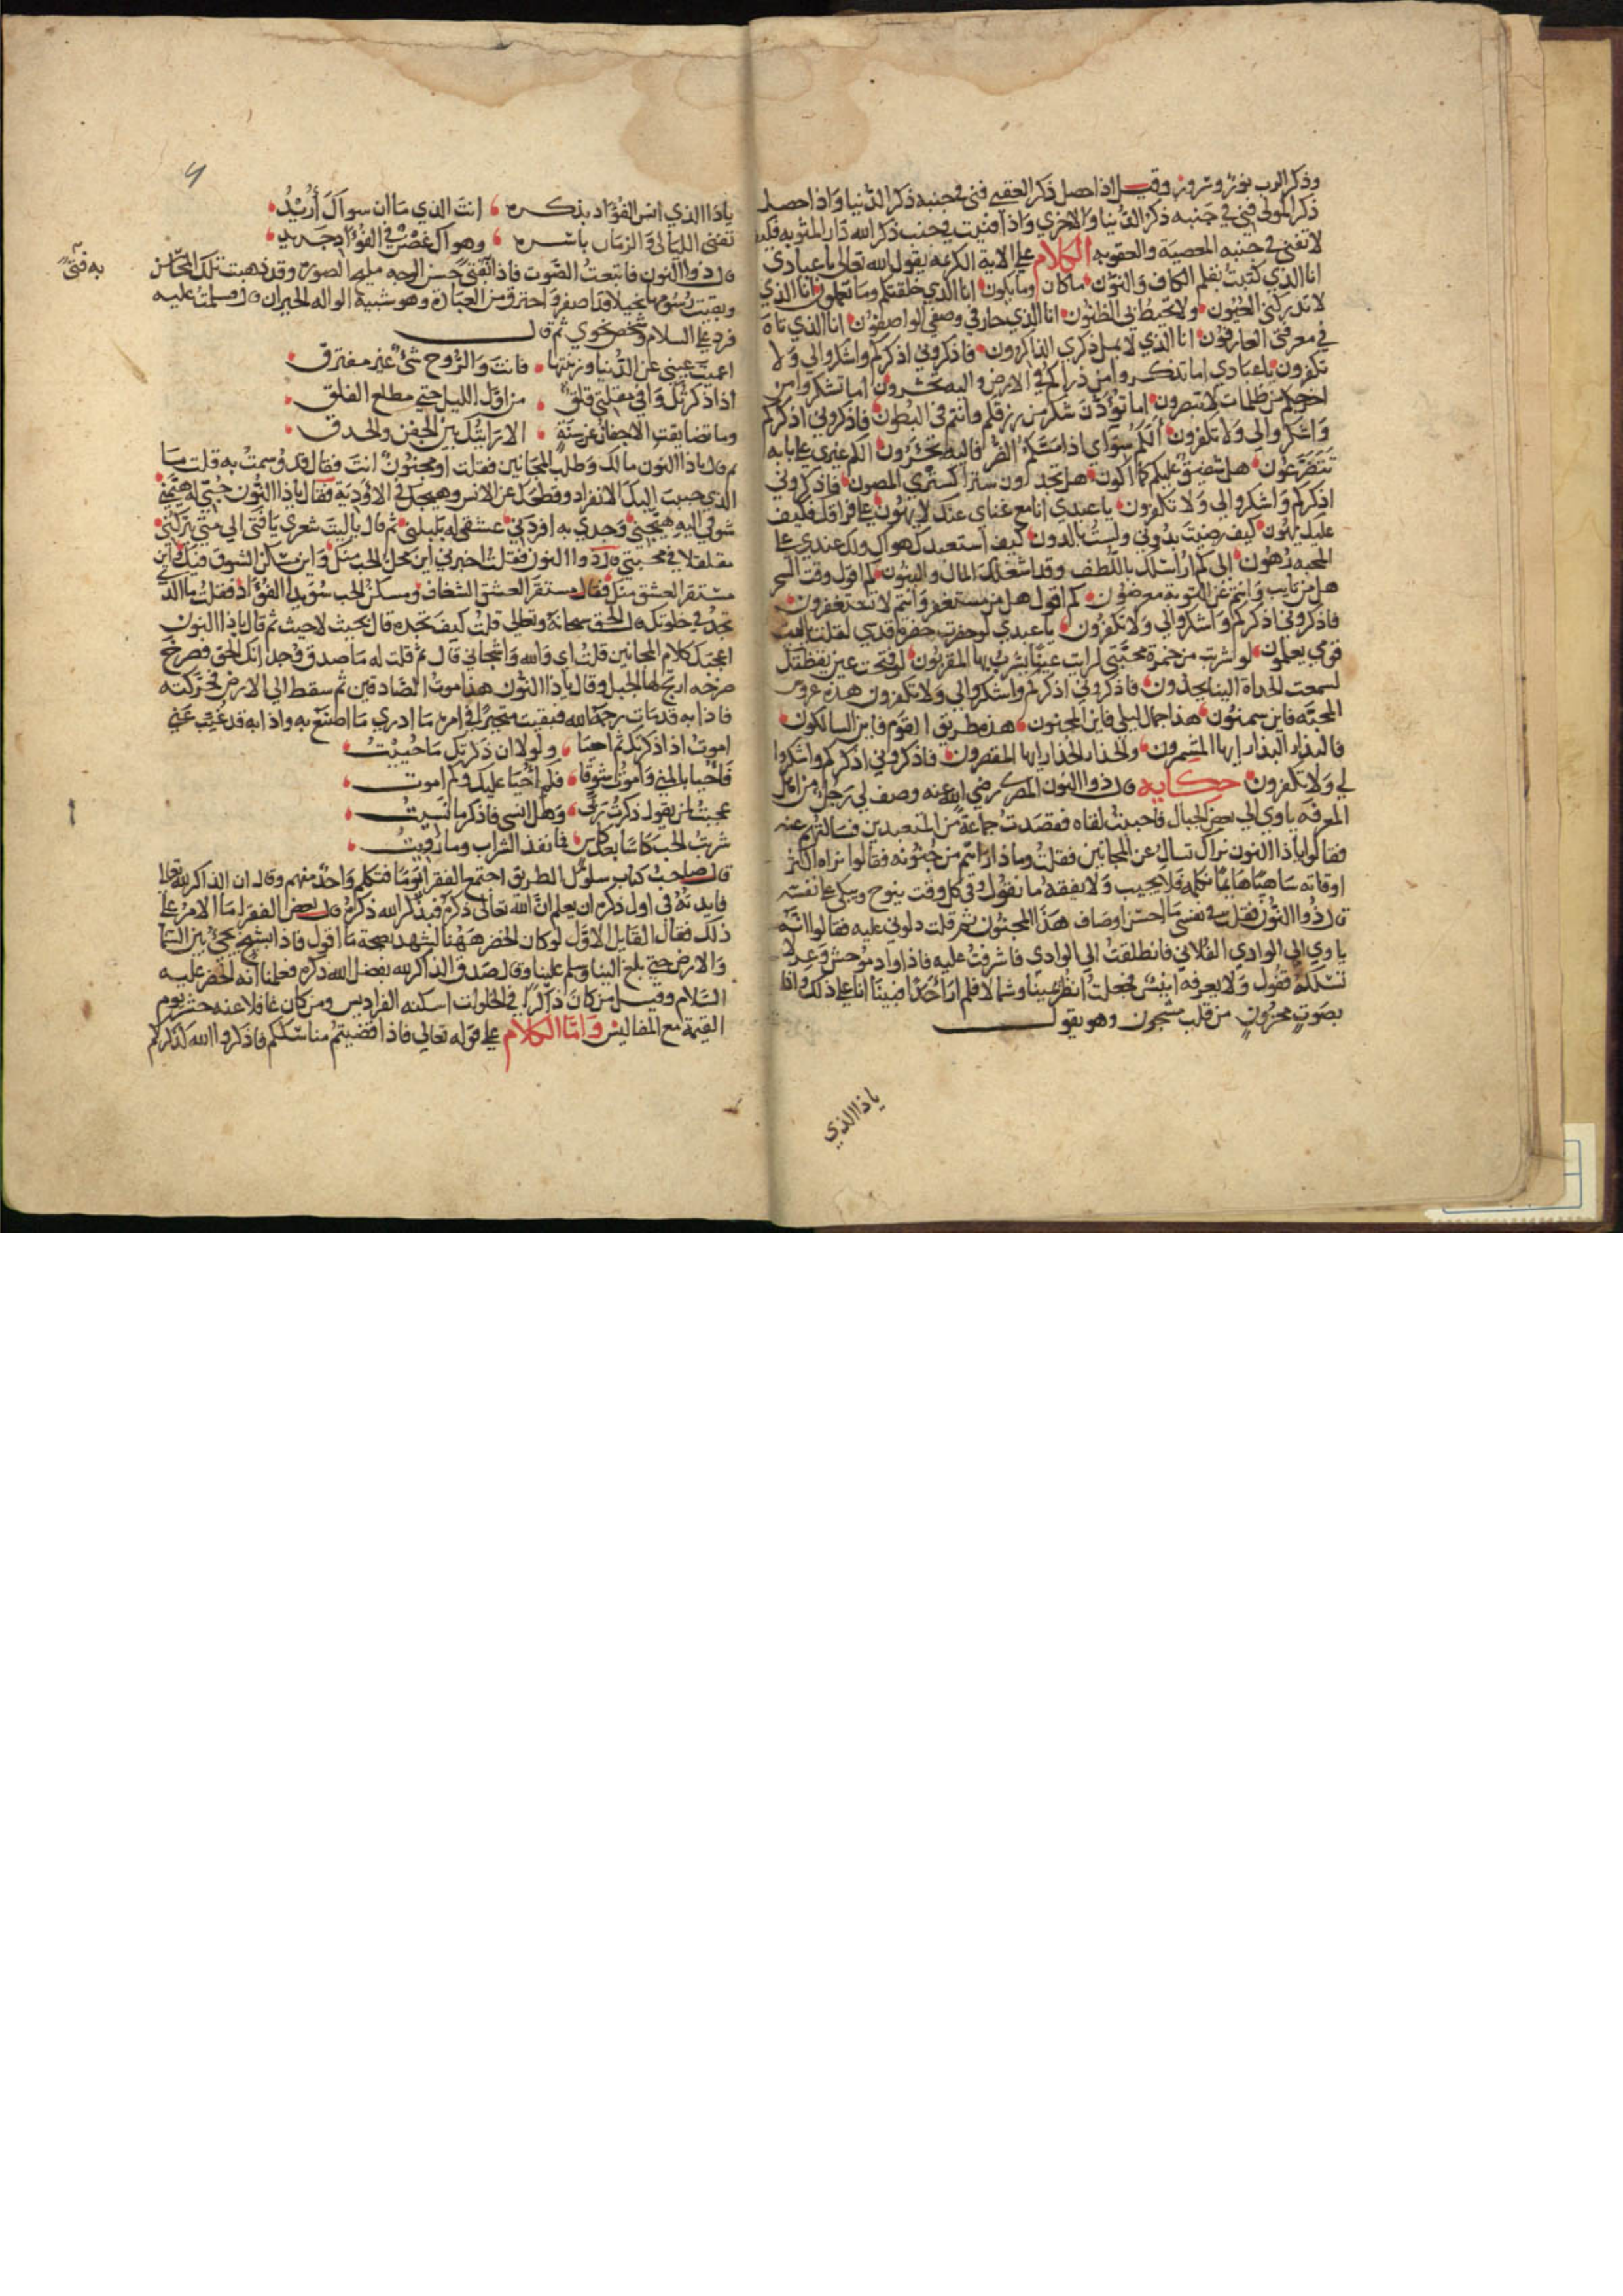 وذكر الرب نور وسرور وقيل اذا حصل ذكر العقبى فنى في جنبه ذكر الدنيا واذا حصل
ذكر المولى فني في جنبه ذكر الدنيا والاخرى واذا فنيت في جنب ذكر الله دار المثوبه فكيف
لا تفنى في جنبه المعصية والعقوبه الكلام على الاية الكريمة يقول الله تعالى يا عبادي
انا الذي كتبت بقلم الكاف والنون ما كان وما يكون انا الذي خلقتكم وما تعملون انا الذي
لا تدركني العيون ولا تحيط بي الظنون انا الذي حار في وصفي الواصفون انا الذي تاه
في معرفتي العارفون انا الذي لا يمل ذكري الذاكرون فاذكروني اذكركم واشكروا لي ولا
تكفرون يا عبادي اما تذكروا من ذراكم في الارض واليه تحشرون اما تشكروا من
اخرجكم من ظلمات لا تبصرون اما تؤدون شكر من رزقكم وانتم في البطون فاذكروني اذكركم
واشكروا لي ولا تكفرون الكم سواي اذا مسكم الضر فاليه تجئرون الكم غيري على بابه
تتضرعون هل شفيق عليكم كما اكون هل تجدون سترا كستري المصون فاذكروني
اذكركم واشكروا لي ولا تكفرون يا عبدي انا مع غناي عنك لا يهون علي فراقك فكيف
عليك يهون كيف رضيت بدوني ولست بالدون كيف استعبدك هواك ولك عندي على
المحبه رهون الى كم اراسلك باللطف وقد اشغلك المال والبنون كم اقول وقت السحر
هل من تايب وانتم عن التوبة معرضون كم اقول هل من مستغفر وانتم لا تستغفرون
فاذكروني اذكركم واشكروا لي ولا تكفرون يا عبدي لو حضرت حضرة قدسي لقلت يا ليت
قومي يعلمون لو شربت من خمرة محبتي لرايت عينا يشرب بها المقربون لو فتحت عين يقظتك
لسمعت الحداة الينا يحدون فاذكروني اذكركم واشكروا لي ولا تكفرون هذه عروس
المحبه فاين ... هذا جمال ليلى فاين المجنون هذه طريق القوم فاين السالكون
فالبدار البدار ايها المشمرون والحذار الحذار ايها المقصرون فاذكروني اذكركم واشكروا
لي ولا تكفرون حكايه قال ذوا النون المصري رضي الله عنه وصف لي رجل من اهل
المعرفه ياوي الى بعض الجبال فاحببت لقاه فقصدت جماعة من المتعبدين فسالتهم عنه
فقالوا يا ذا النون نراك تسال عن المجانين فقلت وما ذا رايتم من جنونه فقالوا نراه اكثر
اوقاته ساهيا هايما نكلمه فلا يجيب ولا يفقه ما نقول وفي كل وقت ينوح ويبكي على نفسه
قال ذوا النون فقلت في نفسي ما احسن اوصاف هذا المجنون ثم قلت دلوني عليه فقالوا انه
ياوي الى الوادي الفلاني فانطلقت الى الوادي فاشرفت عليه فاذا واد موحش وعر لا
... ولا يعرفه انيس فجعلت انظر يمينا وشمالا فلم ار احدا فبينا انا على ذلك واذا
بصوت محزون من قلب مشجون وهو يقول
يا ذا الذي
يا ذا الذي انس الفؤاد بذكره انت الذي ما ان سواك اريد
تفنى الليالي والزمان باسره وهواك غض في الفؤاد جديد
قال ذوا النون فاتبعت الصوت فاذا بفتى حسن الوجه مليح الصوره وقد ذهبت تلك المحاسن
به فتى
وبقيت رسومها نحيلا قد اصفر واحترق من العبادة وهو شبيه الواله الحيران قال فسلمت عليه
فرد علي السلام وشخص نحوي ثم قال
اعميت عيني عن الدنيا وزينتها فانت والروح شئ غير مفترق
اذا ذكرتك وافى مقلتي قلق من اول الليل حتى مطلع الفلق
وما تضايقت الاجفان عن سنة الا رايتك بين الجفن والحدق
ثم قال يا ذا النون مالك وطلب المجانين فقلت او مجنون انت فقال قد وسمت به قلت بما
الذي حبب اليك الانفراد وقطعك عن الانس وهيجك في الاودية فقال يا ذا النون حبي له هيمني
شوقي اليه هيجني وجدي به افردني عشقي له بلبلني ثم قال يا ليت شعري يا فتى الى متى يتركني
مقلقلا في محبتي قال ذوا النون فقلت اخبرني اين محل الحب منك واين مسكن الشوق فيك واين
مستقر العشق منك فقال مستقر العشق الشغاف ومسكن الحب سويدا الفؤاد فقلت ما الذي
تجد في خلوتك قال الحق سبحانه وتعالى قلت كيف تجده قال بحيث لا حيث ثم قال يا ذا النون
اعجبك كلام المجانين قلت اي والله واشجاني قال ثم قلت له ما صدق وجدانك الحق فصرخ
صرخه ارتج لها الجبل وقال يا ذا النون هذا موت الصادقين ثم سقط الى الارض فحركته
فاذا به قد مات رحمه الله فبقيت متحيرا في امره ما ادري ما اصنع به واذا به قد غيب عني
اموت اذا ذكرتك ثم احيا ولولا ان ذكرتك ما حييت
فاحيا بالمنى واموت شوقا فكم احيا عليك وكم اموت
عجبت لمن يقول ذكرت ربي وهل انسى فاذكر ما نسيت
شربت الحب كاسا بعد كاس فما نفذ الشراب وما رويت
قال صاحب كتاب سلوك الطريق اجتمع الفقرا يوما فتكلم واحد منهم وقال ان الذاكر لله تعالى
فايدته في اول ذكره ان يعلم ان الله تعالى ذكره فبذكر الله ذكره قال بعض الفقرا ما الامر على
ذلك فقال القايل الاول لو كان الخضر ههنا لشهد بصحة ما اقول فاذا بشيخ يجئ بين السما
والارض حتى بلغ الينا وسلم علينا وقال صدق الذاكر لله بفضل الله ذكره فعلمنا انه الخضر عليه
السلام وقيل من كان ذاكرا في الخلوات اسكنه الفراديس ومن كان غافلا عنه حشر يوم
القيمة مع المفاليس واما الكلام على قوله تعالى فاذا قضيتم مناسككم فاذكروا الله كذكركم